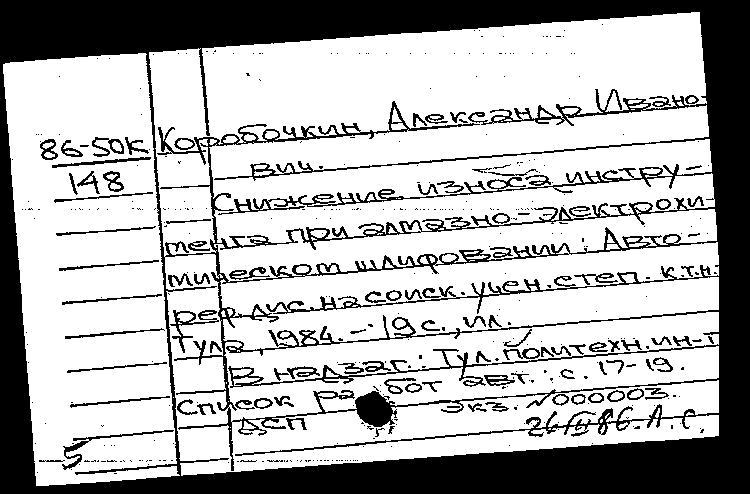 86-50К Коробочкин, Александр Ивано-
148 вич.
Снижение износа инстру-
мента при алмазно-электрохи-
мическом шлифовании: Авто-
реф. дис. на соиск. учен. степ. к.т.н.
Тула, 1984. - 19 с., ил.
В надзаг.: Тул. политехн. ин-т
Список работ авт.: с. 17-19.
ДСП экз. №000003.
26/III 86. А.С.
5